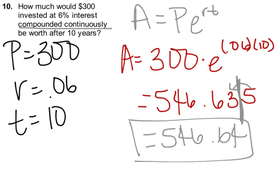 10. How much would $300
invested at 6% interest
compounded continuously
be worth after 10 years?
P=300
r = .06
t = 10
A = Pe^rt
A = 300 · e^(.06)(10)
= 546.635
= 546.64